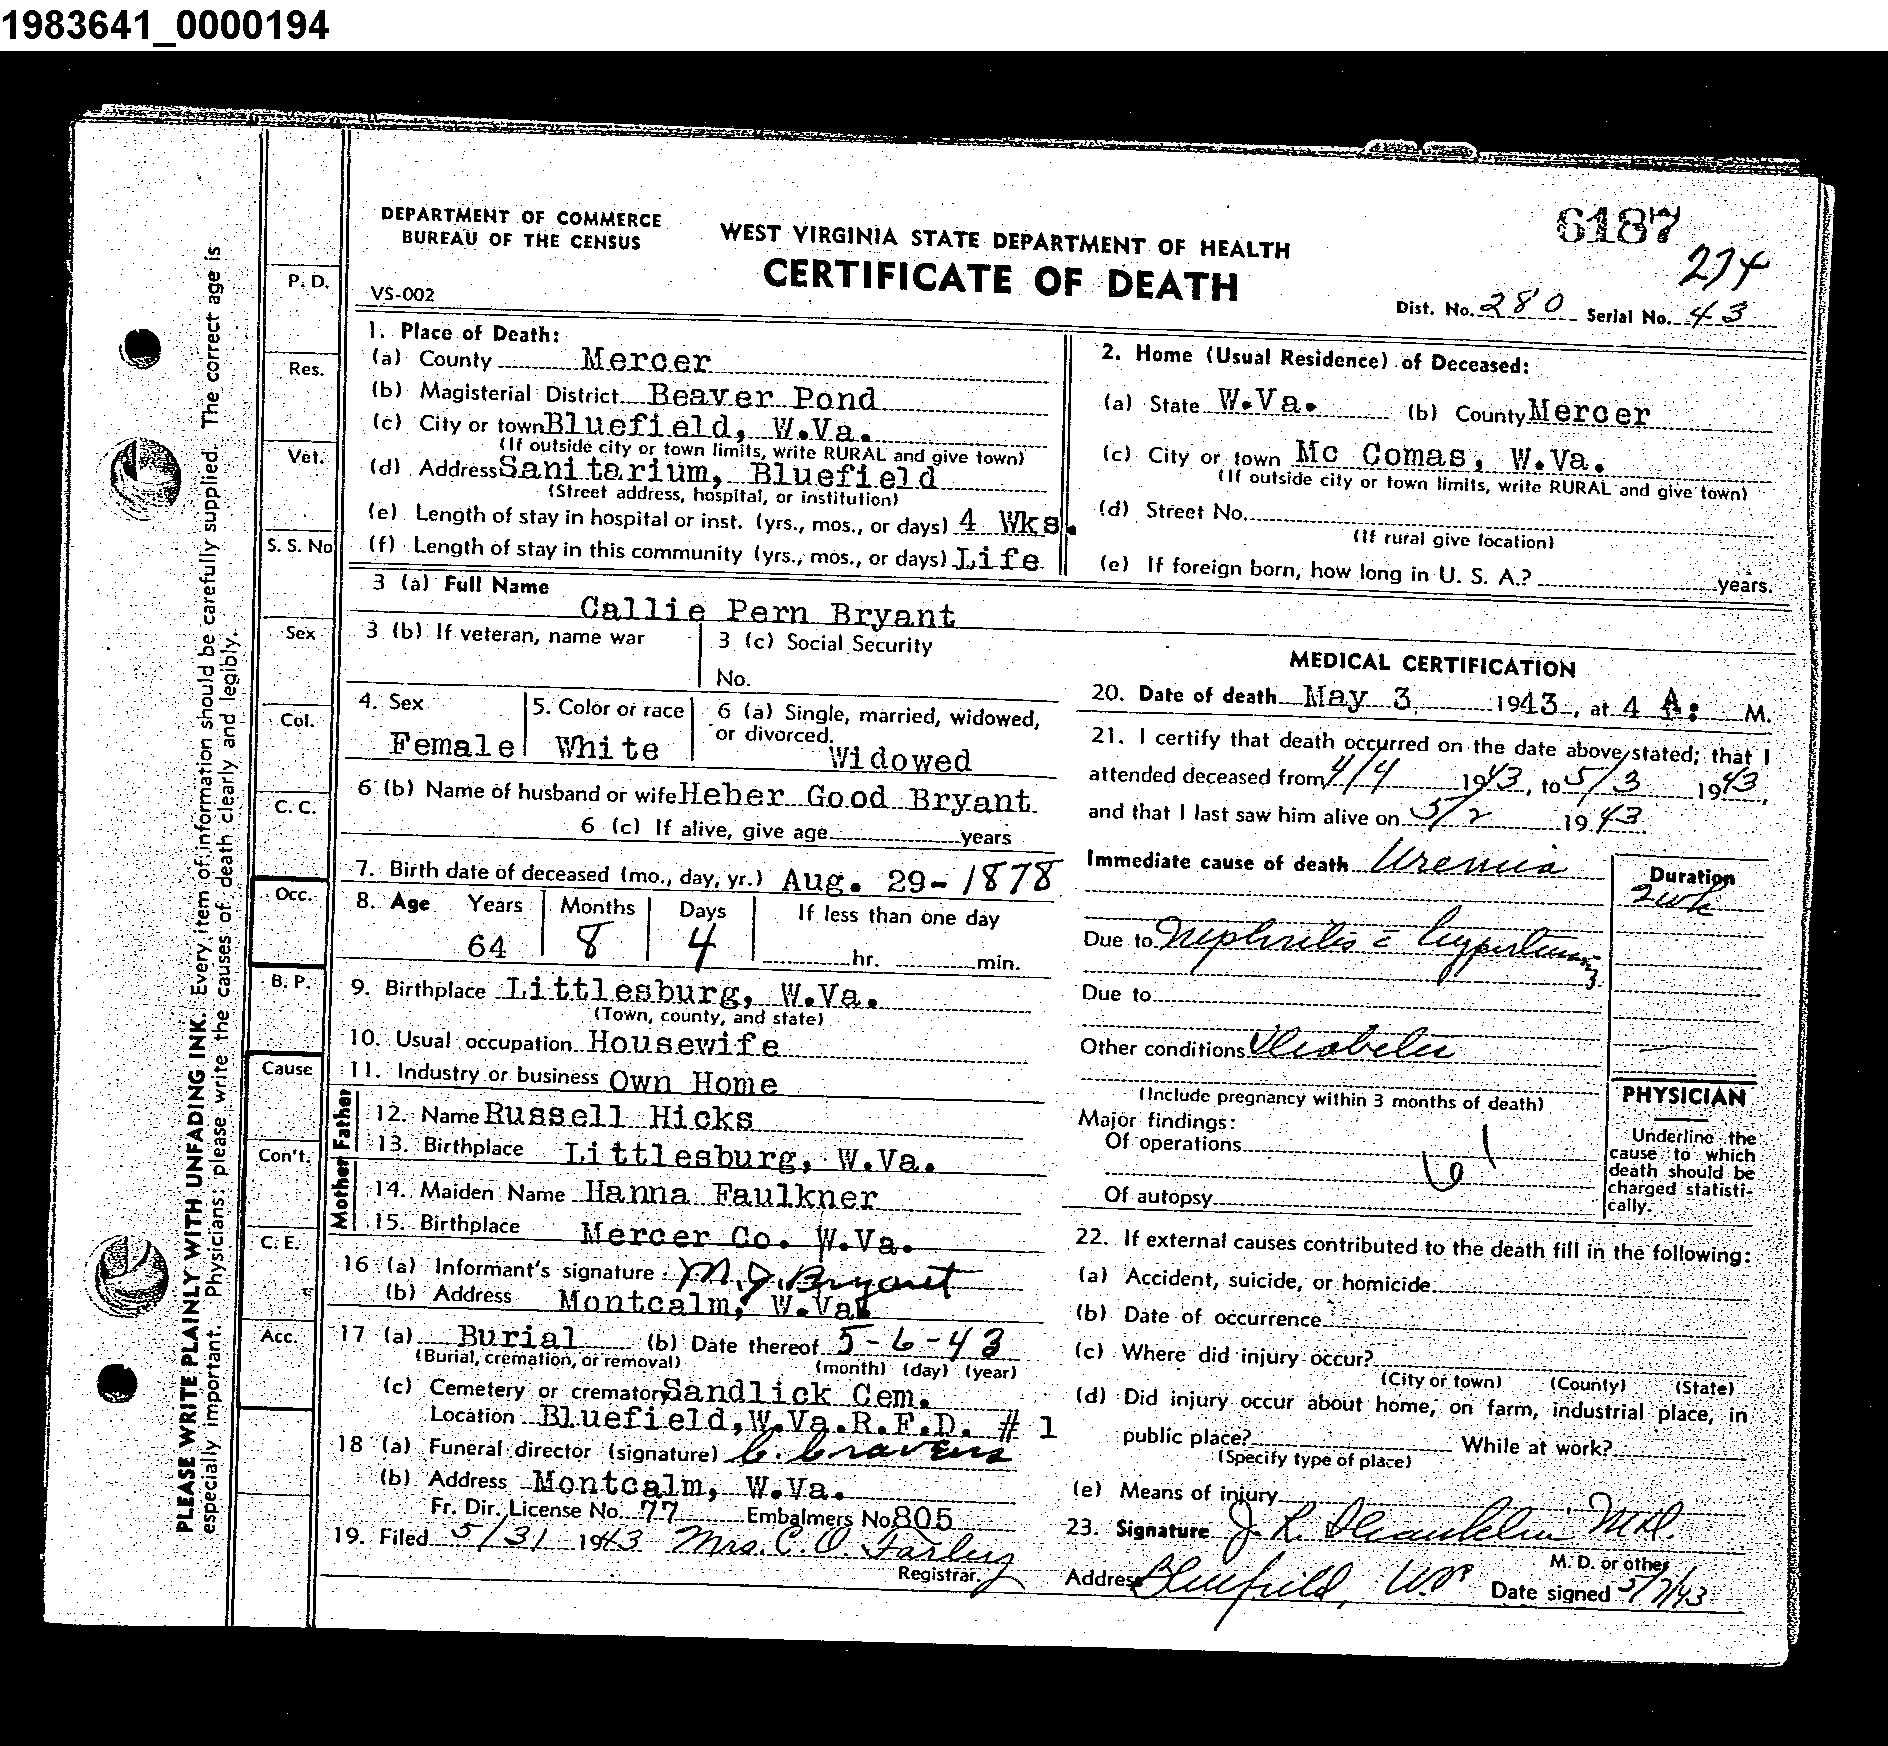 1983641_0000194
6187
274
DEPARTMENT OF COMMERCE
BUREAU OF THE CENSUS
WEST VIRGINIA STATE DEPARTMENT OF HEALTH
CERTIFICATE OF DEATH
VS-002
Dist. No. 280 Serial No. 43
PLEASE WRITE PLAINLY WITH UNFADING INK. Every item of information should be carefully supplied. The correct age is
especially important. Physicians: please write the causes of death clearly and legibly.
P. D.
Res.
Vet.
S. S. No
Sex
Col.
C. C.
Occ.
B. P.
Cause
Con't.
C. E.
Acc.
1. Place of Death:
(a) County Mercer
(b) Magisterial District Beaver Pond
(c) City or town Bluefield, W.Va.
(If outside city or town limits, write RURAL and give town)
(d) Address Sanitarium, Bluefield
(Street address, hospital, or institution)
(e) Length of stay in hospital or inst. (yrs., mos., or days) 4 Wks.
(f) Length of stay in this community (yrs., mos., or days) Life
2. Home (Usual Residence) of Deceased:
(a) State W.Va. (b) County Mercer
(c) City or town Mc Comas, W.Va.
(If outside city or town limits, write RURAL and give town)
(d) Street No.
(If rural give location)
(e) If foreign born, how long in U. S. A.? years.
3 (a) Full Name
Callie Pern Bryant
3 (b) If veteran, name war
3 (c) Social Security
No.
4. Sex
Female
5. Color or race
White
6 (a) Single, married, widowed,
or divorced.
Widowed
6 (b) Name of husband or wife Heber Good Bryant
6 (c) If alive, give age years
7. Birth date of deceased (mo., day, yr.) Aug. 29-1878
8. Age Years Months Days If less than one day
64 8 4 hr. min.
9. Birthplace Littlesburg, W.Va.
(Town, county, and state)
10. Usual occupation Housewife
11. Industry or business Own Home
Father
12. Name Russell Hicks
13. Birthplace Littlesburg, W.Va.
Mother
14. Maiden Name Hanna Faulkner
15. Birthplace Mercer Co. W.Va.
16 (a) Informant's signature M.J. Bryant
(b) Address Montcalm, W.Va.
17 (a) Burial (b) Date thereof 5-6-43
(Burial, cremation, or removal) (month) (day) (year)
(c) Cemetery or crematory Sandlick Cem.
Location Bluefield,W.Va.R.F.D. # 1
18 (a) Funeral director (signature) C. Cravens
(b) Address Montcalm, W.Va.
Fr. Dir. License No. 77 Embalmers No 805
19. Filed 5/31 1943 Mrs. C. O. Farley
Registrar.
MEDICAL CERTIFICATION
20. Date of death May 3 1943, at 4 A: M.
21. I certify that death occurred on the date above stated; that I
attended deceased from 4/4 1943, to 5/3 1943,
and that I last saw him alive on 5/2 1943
Immediate cause of death Uremia
Duration
2 wk
Due to Nephritis c hypertension
Due to
Other conditions Diabetes
(Include pregnancy within 3 months of death)
Major findings:
Of operations
Of autopsy
PHYSICIAN
Underline the
cause to which
death should be
charged statisti-
cally.
22. If external causes contributed to the death fill in the following:
(a) Accident, suicide, or homicide
(b) Date of occurrence
(c) Where did injury occur?
(City or town) (County) (State)
(d) Did injury occur about home, on farm, industrial place, in
public place? While at work?
(Specify type of place)
(e) Means of injury
23. Signature J. R. M.D.
M. D. or other
Address Bluefield, W.V Date signed 5/7/43